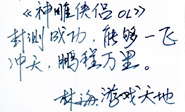 《神雕侠侣OL》
封测成功，能够一飞
冲天，鹏程万里。
林海游戏天地